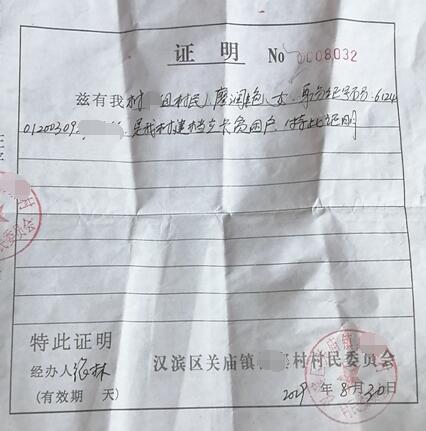 证明 No 0008032
兹有我村 组村民廖润艳，女，身份证号码：6124
01200309 是我村建档立卡贫困户，特此证明
特此证明
经办人 张林
汉滨区关庙镇 村村民委员会
(有效期 天)
2019年8月30日